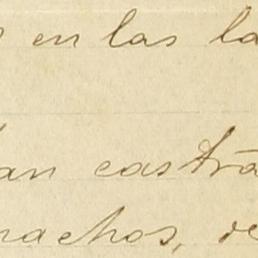 en las la
an castra
machos, de